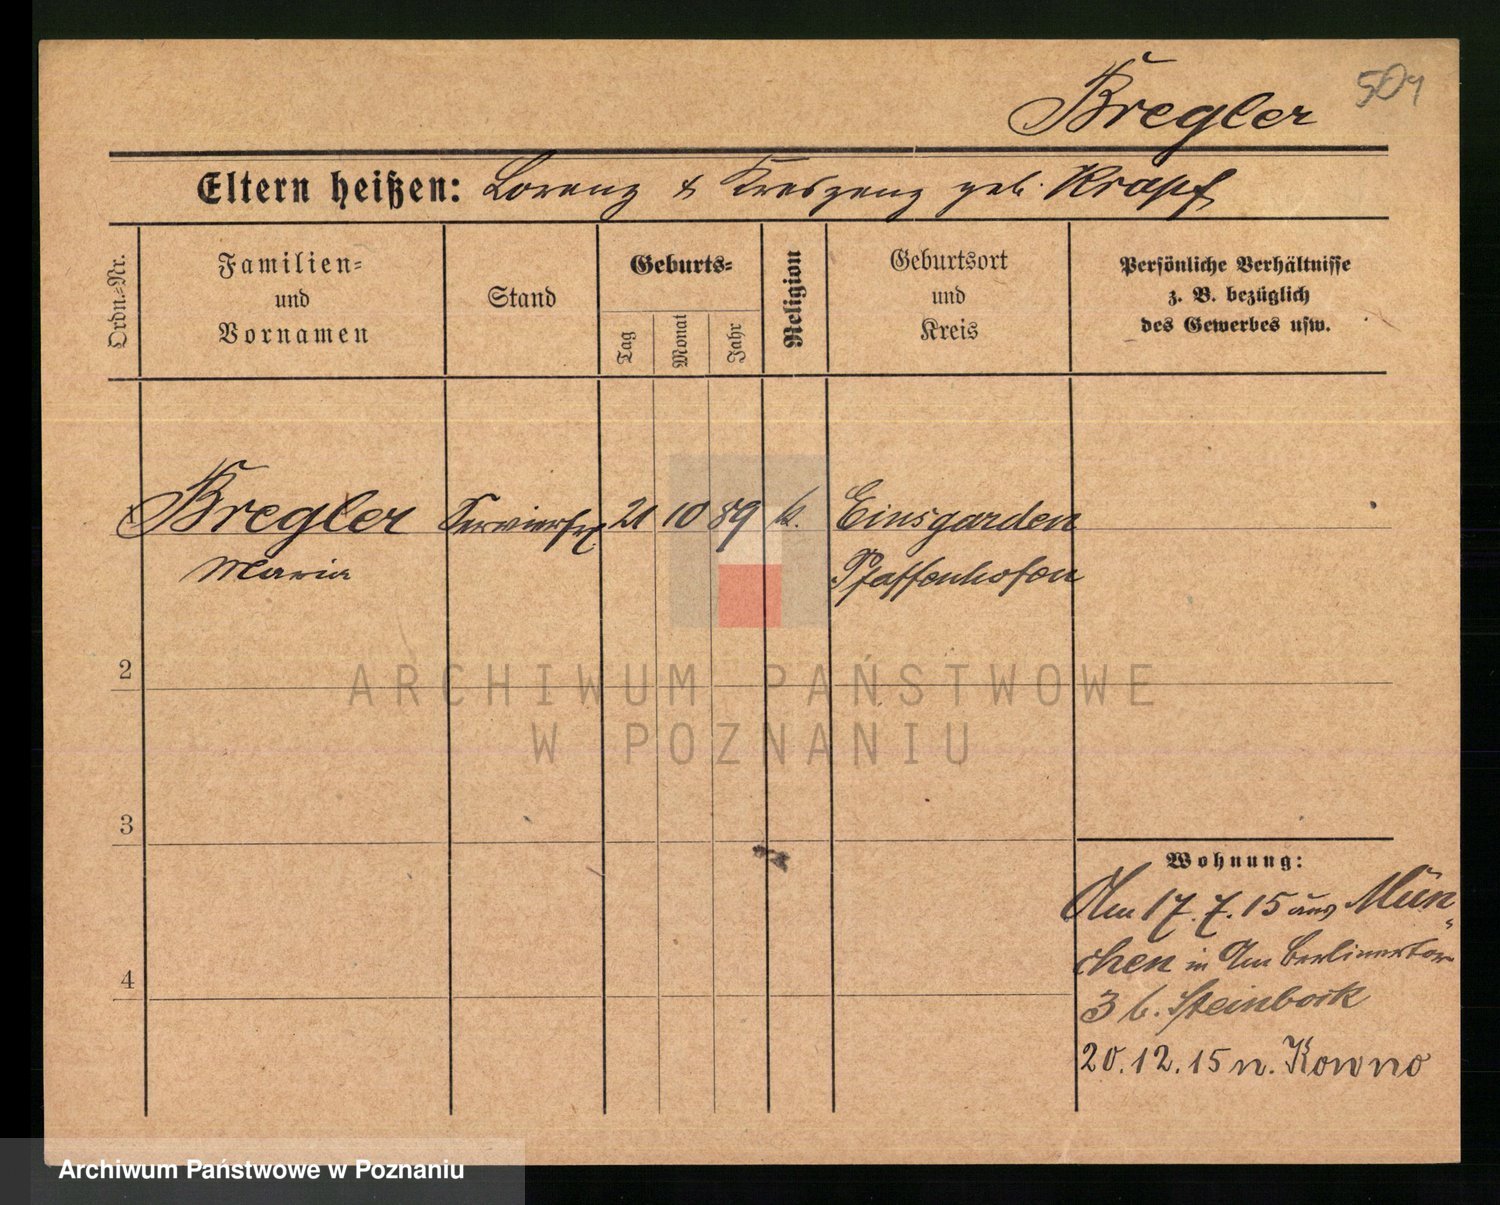 Bregler
501
Eltern heißen: Lorenz & Kreszenz geb. Krapf
Ordn.=Nr.
Familien=
und
Vornamen
Stand
Geburts=
Tag
Monat
Jahr
Religion
Geburtsort
und
Kreis
Persönliche Verhältnisse
z. B. bezüglich
des Gewerbes usw.
Bregler Servierfrl. 21 10 89 k. Einsgarden
Maria Pfaffenhofen
2
3
4
Wohnung:
Am 17. 7. 15 aus Mün„
chen in Am Berlinertor
3 b. Steinbock
20. 12. 15 n. Kowno
ARCHIWUM PAŃSTWOWE
W POZNANIU
Archiwum Państwowe w Poznaniu